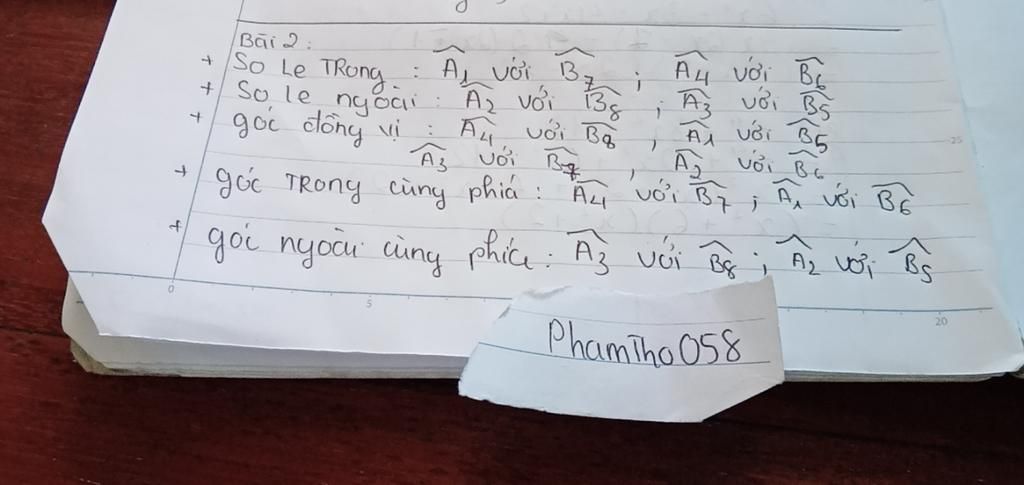 Bài 2:
+ So le TRong : Â₁ với B̂₇ ; Â₄ với B̂₆
+ So le ngoài : Â₂ với B̂₈ ; Â₃ với B̂₅
+ góc đồng vị : Â₄ với B̂₈ , Â₁ với B̂₅
Â₃ với B̂₇ , Â₂ với B̂₆
+ góc TRong cùng phiá : Â₄ với B̂₇ ; Â₁ với B̂₆
+ góc ngoài cùng phíc : Â₃ với B̂₈ ; Â₂ với B̂₅
0 5 20
25
PhamTho058